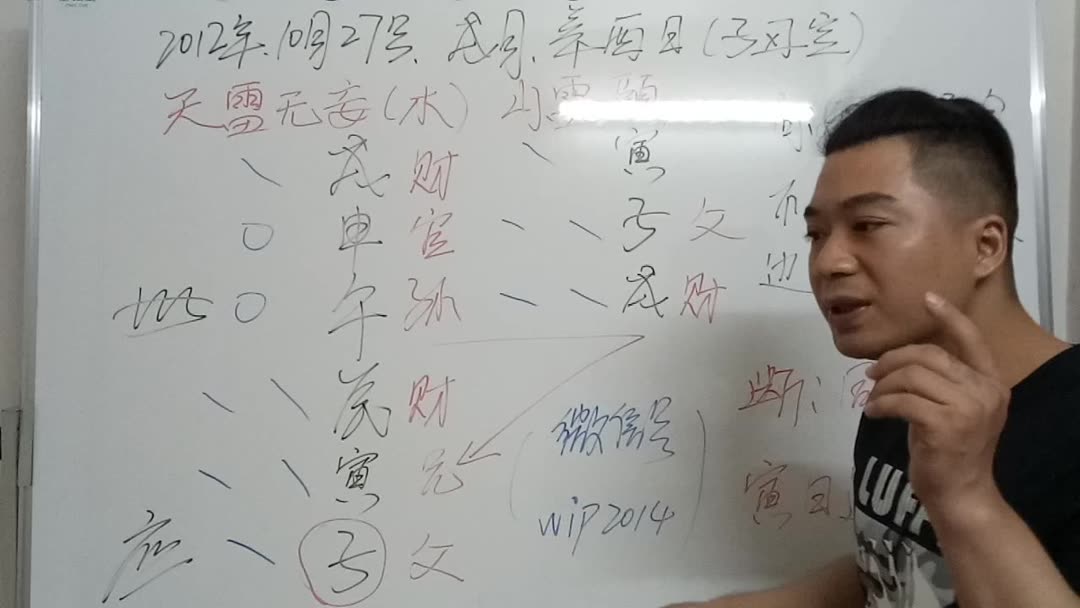 2012年.10月27号. 戌月.辛酉日(子丑空)
天雷无妄(水) 山雷頤
戌 财 寅
申 官 子 父
世 午 孙 戌 财
辰 财
寅 兄
应 子 父
微信号
wip2014
断:
寅日
LUFF